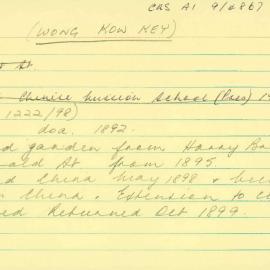 CRS A1 9/6867
(WONG KOW KEY)
St.
Chinese Mission School (Pres)
1222/98)
doa. 1892.
garden from Harry
St from 1895
China May 1898 &
China. Extension to
Returned Oct 1899.